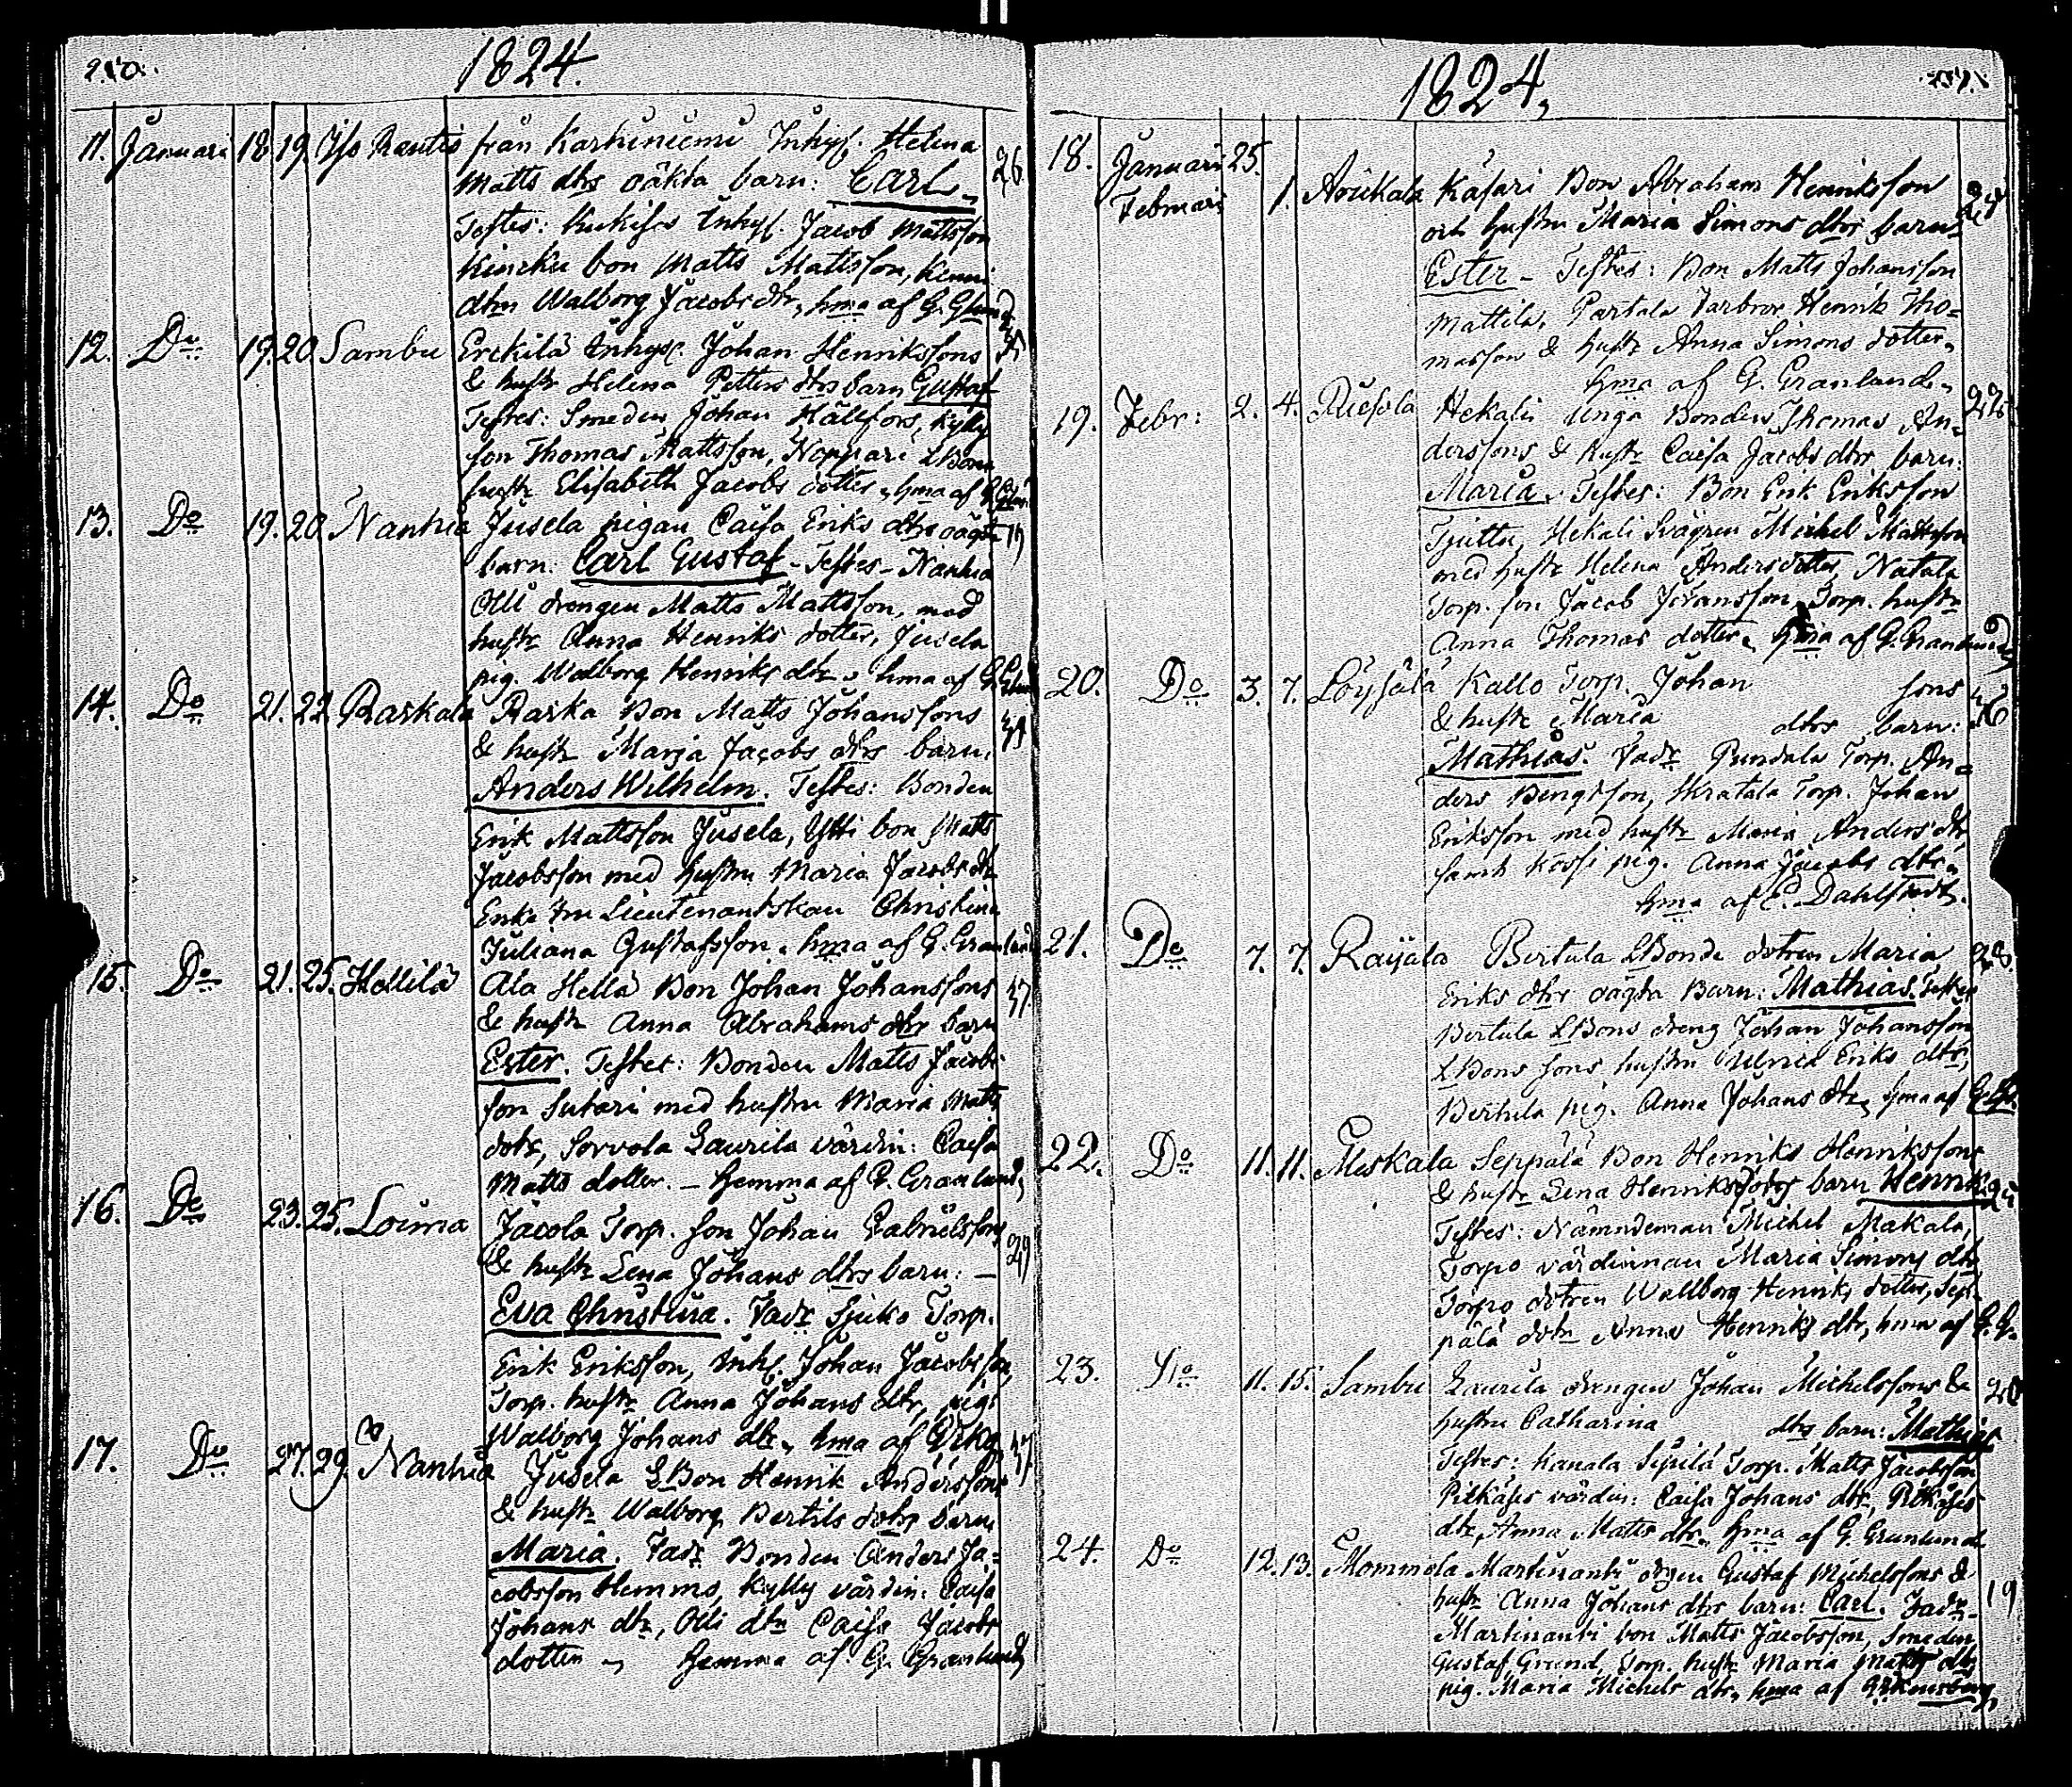 1824.
11. Januari 18. 19. Yso Rantis från Karhiniemi Inhys. Helena 26
Matts dtrs oäkta barn: Carl.
Testes: Kukises Inhys. Jacob Mattsson
bon Matts Mattsson,
dtrn Walborg Jacobs dtr, hma af G.
12. Do 19. 20. Sambu Erckilä Inhys. Johan Henrikssons
& hustr Helena Petters dtrs barn Gustaf
Testes: Smeden Johan Hällfors, Kylly
son Thomas Mattsson, Noppari LBons
hustr Elisabeth Jacobs dotter, hma af
13. Do 19. 20. Nanhia Jusela pigan Caisa Eriks dtrs oägta
barn: Carl Gustaf - Testes - Nanhia
Olli drengen Matts Mattsson, med
hustr Anna Henriks dotter, Jusela
pig. Walborg Henriks dtr. hma af
14. Do 21. 22. Raskala Raska Bon Matts Johanssons
& hustr Marja Jacobs dtrs barn.
Anders Wilhelm. Testes: Bonden
Erik Mattsson Jusela, Ytti bon Matts
Jacobsson med hustru Maria Jacobs dtr
Enke fru Lieutenantskan Christina
Juliana Gustafsson. hma af G. Granlund
15. Do 21. 25. Hellilä Ala Hellä Bon Johan Johanssons 37.
& hustr Anna Abrahams dtr barn
Ester. Testes: Bonden Matts Jacobs
son Sutari med hustru Maria Matts
dotr, Sorvola Laurila värdin: Caisa
Matts dotter. - Hemma af G. Granlund,
16. Do 23. 25. Loima Jacola Torp. son Johan Gabrielssons 29
& hustr Lena Johans dtrs barn: -
Eva Christina. Fadr Sjuko Torp.
Erik Eriksson, Inhs. Johan Jacobsson,
Torp. hustr Anna Johans dtr, pig:
Walborg Johans dtr, hma af
17. Do 27. 29. Nanhia Jusela LBon Henrik Anderssons 37
& hustr Walborg Bertils dotrs barn
Maria. Fadr Bonden Anders Ja=
cobsson Hemmo, Kylly värdin: Caisa
Johans dtr, Olli dtr Caisa Jacobs
dotter - Hemma af G. Granlund
1824,
18. Januari 25.
Februari 1. Arikala Käsari Bon Abraham Henriksson
och hustru Maria Simons dtrs barn
Ester - Testes: Bon Matts Johansson
Mattila, Partala Farbror Henrik Tho=
masson & hustr Anna Simons dotter,
hma af G. Granlund.
19. Febr: 2. 4. Ruisola Hekali unga Bonden Thomas An=
derssons & hustr Caisa Jacobs dtrs barn:
Maria. Testes: Bon Erik Eriksson
Tjuttu, Hekali Svågren Michel Mattsson
med hustr Helena Andersdotter, Natala
Torp. son Jacob Johansson, Torp. hustr
Anna Thomas dotter. hma af G. Granlund
20. Do 3. 7. Löysälä Kallo Torp. Johan sons 36
& hustr Maria dtrs barn:
Mathias. Fadr Pundala Torp. An=
ders Bengtsson, Skratala Torp. Johan
Eriksson med hustr Maria Anders dtr,
samt Kossi pig. Anna Jacobs dtr.
hma af C. Dahlstedt.
21. Do 7. 7. Raijala Bertula LBonde dotren Maria 28.
Eriks dtrs oägta Barn: Mathias. Testes
Bertula LBons dreng Johan Johansson,
LBons sons hustru Ulrica Eriks dtr,
Bertula pig. Anna Johans dtr, hma af
22. Do 11. 11. Muskala Seppälä Bon Henriks Henrikssons
& hustr Lena Henriks dotrs barn Henrik
Testes: Nämndeman Michel Makala,
Torpo värdinnan Maria Simons dtr
Torpo dotren Wallborg Henriks dotter, Sep=
pälä dotr Anna Henriks dtr, hma af G. G.
23. Do 11. 15. Sambu Laurila drengen Johan Michelssons & 20
hustru Catharina dtrs barn: Mathias
Testes: Kanala Sipilä Torp. Matts Jacobsson,
Pitkäjes värdin: Caisa Johans dtr, Pitkäjes
dtr, Anna Matts dtr. hma af G. Granlund
24. Do 12. 13. Mommola Martinanti drgen Gustaf Michelssons & 19
hustr Anna Johans dtrs barn: Carl. Fadr
Martinanti bon Matts Jacobsson, Smeden
Gustaf Grund, Torp. hustr Maria Matts dtr,
pig. Maria Michels dtr, hma af